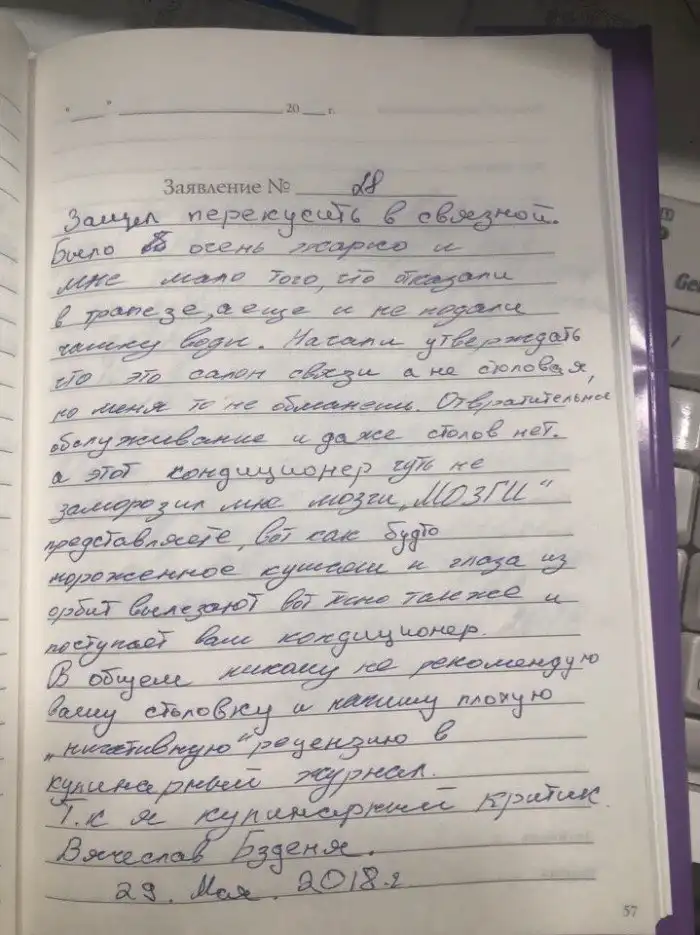 "___" ____________ 20 __ г.
Заявление № 28
Зашел перекусить в связной.
Было очень жарко и
мне мало того, что отказали
в трапезе, а еще и не подали
чашку воды. Начали утверждать
что это салон связи а не столовая,
но меня то не обманеш. Отвратительное
обслуживание и даже столов нет.
а этот кондиционер чуть не
заморозил мне мозги „МОЗГИ"
представляете, вот как будто
мороженное кушаеш и глаза из
орбит вылезают вот точно также и
поступает ваш кондиционер.
В общем никому не рекомендую
вашу столовку и напишу плохую
„нигативную" рецензию в
кулинарный журнал.
Т.к я кулинарный критик.
Вячеслав Бзденя.
29. Мая. 2018 г
57